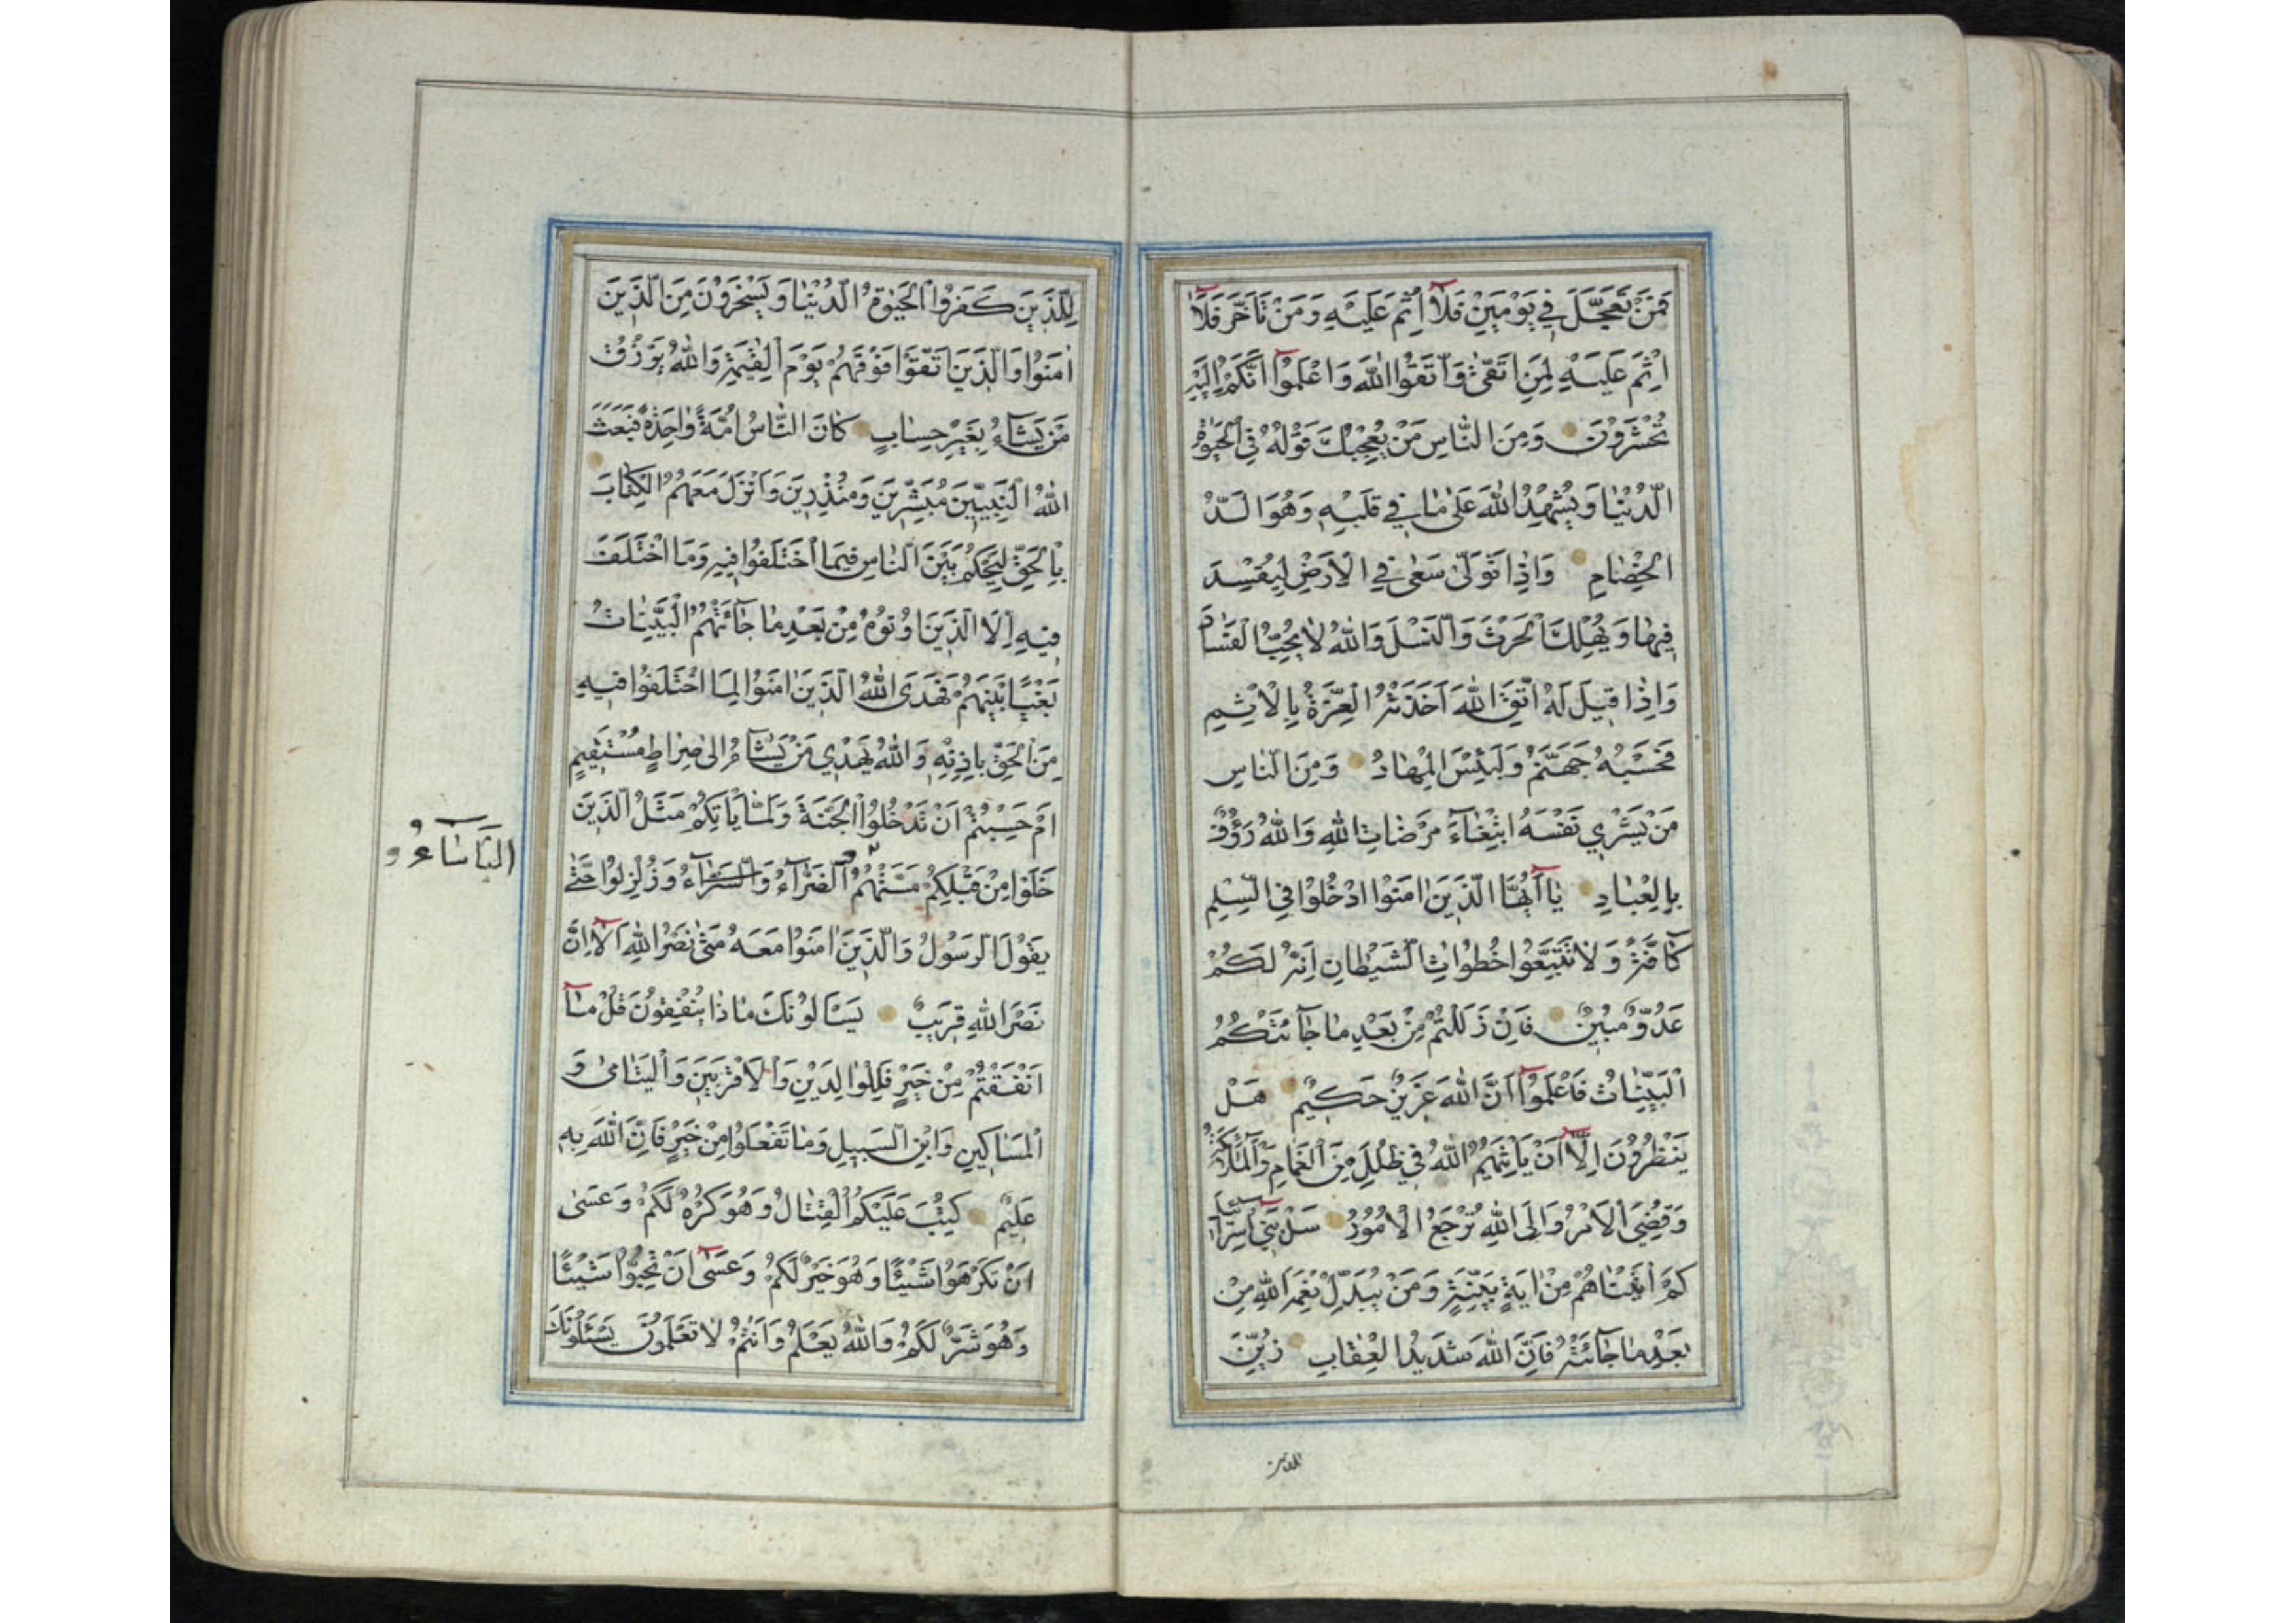 فَمَنْ تَعَجَّلَ فِي يَوْمَيْنِ فَلَآ اِثْمَ عَلَيْهِ وَمَنْ تَاَخَّرَ فَلَآ
اِثْمَ عَلَيْهِ لِمَنِ اتَّقىٰ وَاتَّقُوا اللّٰهَ وَاعْلَمُوآ اَنَّكُمْ اِلَيْهِ
تُحْشَرُونَ وَمِنَ النّٰاسِ مَنْ يُعْجِبُكَ قَوْلُهُ فِي الْحَيٰوةِ
الدُّنْيٰا وَيُشْهِدُ اللّٰهَ عَلىٰ مٰا فِي قَلْبِهِ وَهُوَ اَلَدُّ
الْخِصٰامِ وَاِذٰا تَوَلّىٰ سَعىٰ فِي الْاَرْضِ لِيُفْسِدَ
فِيهٰا وَيُهْلِكَ الْحَرْثَ وَالنَّسْلَ وَاللّٰهُ لٰا يُحِبُّ الْفَسٰادَ
وَاِذٰا قِيلَ لَهُ اتَّقِ اللّٰهَ اَخَذَتْهُ الْعِزَّةُ بِالْاِثْمِ
فَحَسْبُهُ جَهَنَّمُ وَلَبِئْسَ الْمِهٰادُ وَمِنَ النّٰاسِ
مَنْ يَشْرِي نَفْسَهُ ابْتِغٰآءَ مَرْضٰاتِ اللّٰهِ وَاللّٰهُ رَؤُفٌ
بِالْعِبٰادِ يٰآ اَيُّهَا الَّذِينَ اٰمَنُوا ادْخُلُوا فِي السِّلْمِ
كٰآفَّةً وَلٰا تَتَّبِعُوا خُطُوٰاتِ الشَّيْطٰانِ اِنَّهُ لَكُمْ
عَدُوٌّ مُبِينٌ فَاِنْ زَلَلْتُمْ مِنْ بَعْدِ مٰا جٰآئَتْكُمُ
الْبَيِّنٰاتُ فَاعْلَمُوآ اَنَّ اللّٰهَ عَزِيزٌ حَكِيمٌ هَلْ
يَنْظُرُونَ اِلَّآ اَنْ يَاْتِيَهُمُ اللّٰهُ فِي ظُلَلٍ مِنَ الْغَمٰامِ وَالْمَلٰٓئِكَةُ
وَقُضِيَ الْاَمْرُ وَاِلَى اللّٰهِ تُرْجَعُ الْاُمُورُ سَلْ بَنِيٓ اِسْرٰآئِيلَ
كَمْ اٰتَيْنٰاهُمْ مِنْ اٰيَةٍ بَيِّنَةٍ وَمَنْ يُبَدِّلْ نِعْمَةَ اللّٰهِ مِنْ
بَعْدِ مٰا جٰآئَتْهُ فَاِنَّ اللّٰهَ شَدِيدُ الْعِقٰابِ زُيِّنَ
لِلَّذِينَ كَفَرُوا الْحَيٰوةُ الدُّنْيٰا وَيَسْخَرُونَ مِنَ الَّذِينَ
اٰمَنُوا وَالَّذِينَ اتَّقَوْا فَوْقَهُمْ يَوْمَ الْقِيٰمَةِ وَاللّٰهُ يَرْزُقُ
مَنْ يَشٰآءُ بِغَيْرِ حِسٰابٍ كٰانَ النّٰاسُ اُمَّةً وٰاحِدَةً فَبَعَثَ
اللّٰهُ النَّبِيِّينَ مُبَشِّرِينَ وَمُنْذِرِينَ وَاَنْزَلَ مَعَهُمُ الْكِتٰابَ
بِالْحَقِّ لِيَحْكُمَ بَيْنَ النّٰاسِ فِيمَا اخْتَلَفُوا فِيهِ وَمَا اخْتَلَفَ
فِيهِ اِلَّا الَّذِينَ اُوتُوهُ مِنْ بَعْدِ مٰا جٰآئَتْهُمُ الْبَيِّنٰاتُ
بَغْيًا بَيْنَهُمْ فَهَدَى اللّٰهُ الَّذِينَ اٰمَنُوا لِمَا اخْتَلَفُوا فِيهِ
مِنَ الْحَقِّ بِاِذْنِهِ وَاللّٰهُ يَهْدِي مَنْ يَشٰآءُ اِلىٰ صِرٰاطٍ مُسْتَقِيمٍ
اَمْ حَسِبْتُمْ اَنْ تَدْخُلُوا الْجَنَّةَ وَلَمّٰا يَاْتِكُمْ مَثَلُ الَّذِينَ
خَلَوْا مِنْ قَبْلِكُمْ مَسَّتْهُمُ الضَّرّٰآءُ وَالسَّرّٰآءُ وَزُلْزِلُوا حَتّٰى
الْبَاْسٰآءُ و
يَقُولَ الرَّسُولُ وَالَّذِينَ اٰمَنُوا مَعَهُ مَتىٰ نَصْرُ اللّٰهِ اَلَآ اِنَّ
نَصْرَ اللّٰهِ قَرِيبٌ يَسْاَلُونَكَ مٰا ذٰا يُنْفِقُونَ قُلْ مٰآ
اَنْفَقْتُمْ مِنْ خَيْرٍ فَلِلْوٰالِدَيْنِ وَالْاَقْرَبِينَ وَالْيَتٰامىٰ وَ
الْمَسٰاكِينِ وَابْنِ السَّبِيلِ وَمٰا تَفْعَلُوا مِنْ خَيْرٍ فَاِنَّ اللّٰهَ بِهِ
عَلِيمٌ كُتِبَ عَلَيْكُمُ الْقِتٰالُ وَهُوَ كُرْهٌ لَكُمْ وَعَسىٰ
اَنْ تَكْرَهُوا شَيْئًا وَهُوَ خَيْرٌ لَكُمْ وَعَسىٰٓ اَنْ تُحِبُّوا شَيْئًا
وَهُوَ شَرٌّ لَكُمْ وَاللّٰهُ يَعْلَمُ وَاَنْتُمْ لٰا تَعْلَمُونَ يَسْئَلُونَكَ